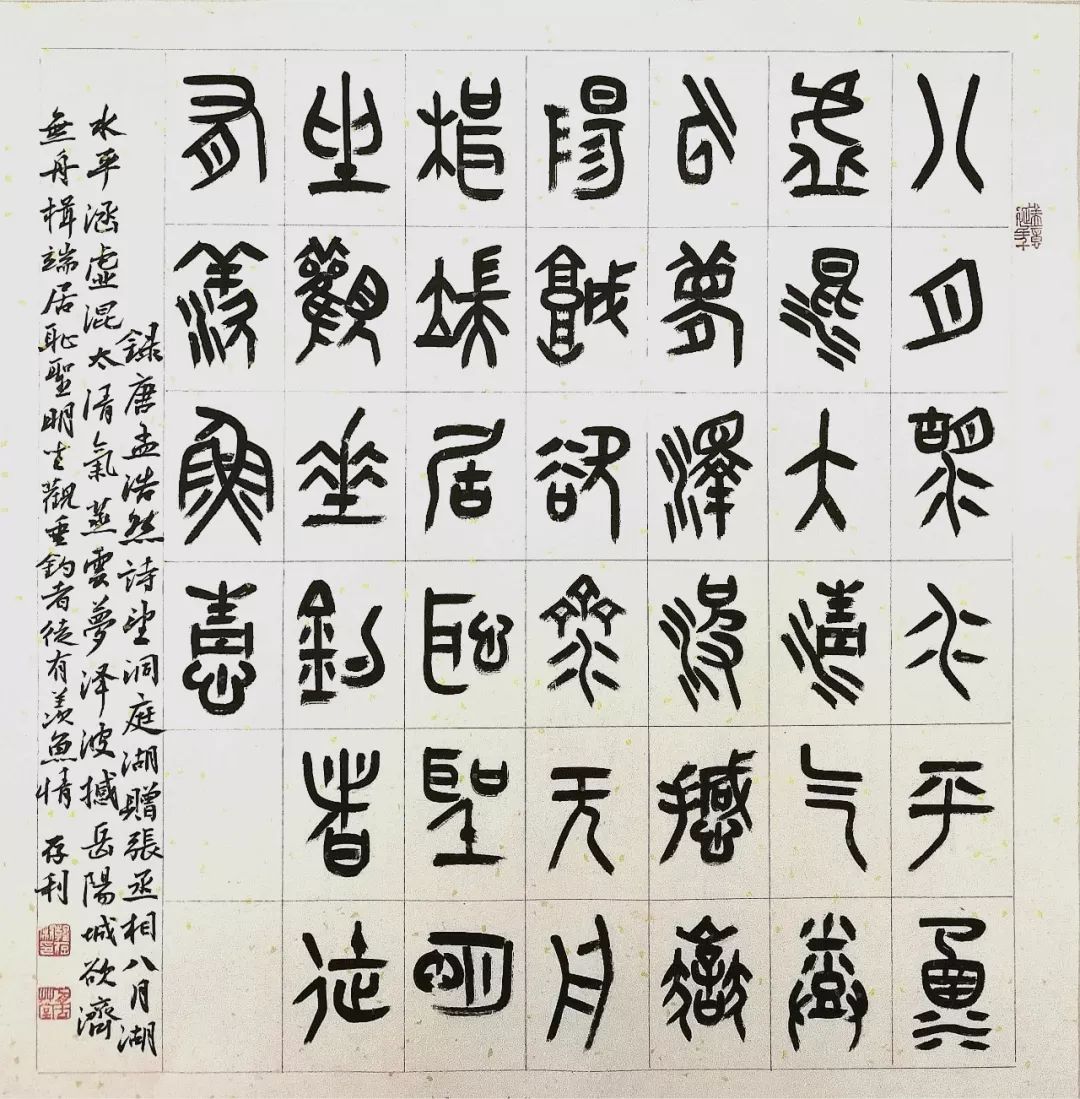 八月湖水平涵
虛混大清气蒸
云夢澤波撼嶽
陽城欲濟无舟
楫端居恥聖明
坐觀垂釣者徒
有羨魚情
錄唐孟浩然詩望洞庭湖贈張丞相八月湖
水平涵虚混太清氣蒸雲夢泽波撼岳陽城欲濟
無舟楫端居耻聖明坐觀垂釣者徒有羨魚情 存利